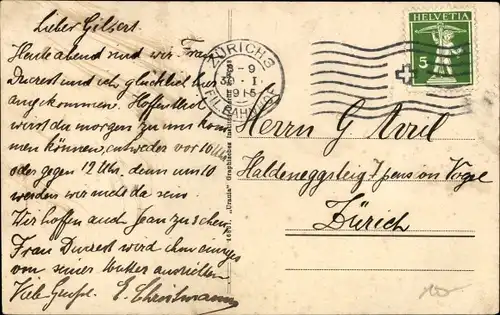 Lieber Gilbert.
Heute abend sind wir, Frau
Ducrest und ich, glücklich hier
angekommen. Hoffentlich
wirst du morgen zu uns kom
men können, entweder vor 10 Uhr
oder gegen 12 Uhr, denn um 10
werden wir nicht da sein
Wir hoffen auch Jean zu sehen
Frau Ducrest wird ihm einiges
von seiner Mutter ausrichten
Viele Grüsse. E. Christmann
ZÜRICH 3
30. I.
1915
FIL. BAHNHOF
HELVETIA
5
"Urania" Graphisches
Herrn G Avril
Haldeneggsteig 7 pension Vogel
Zürich